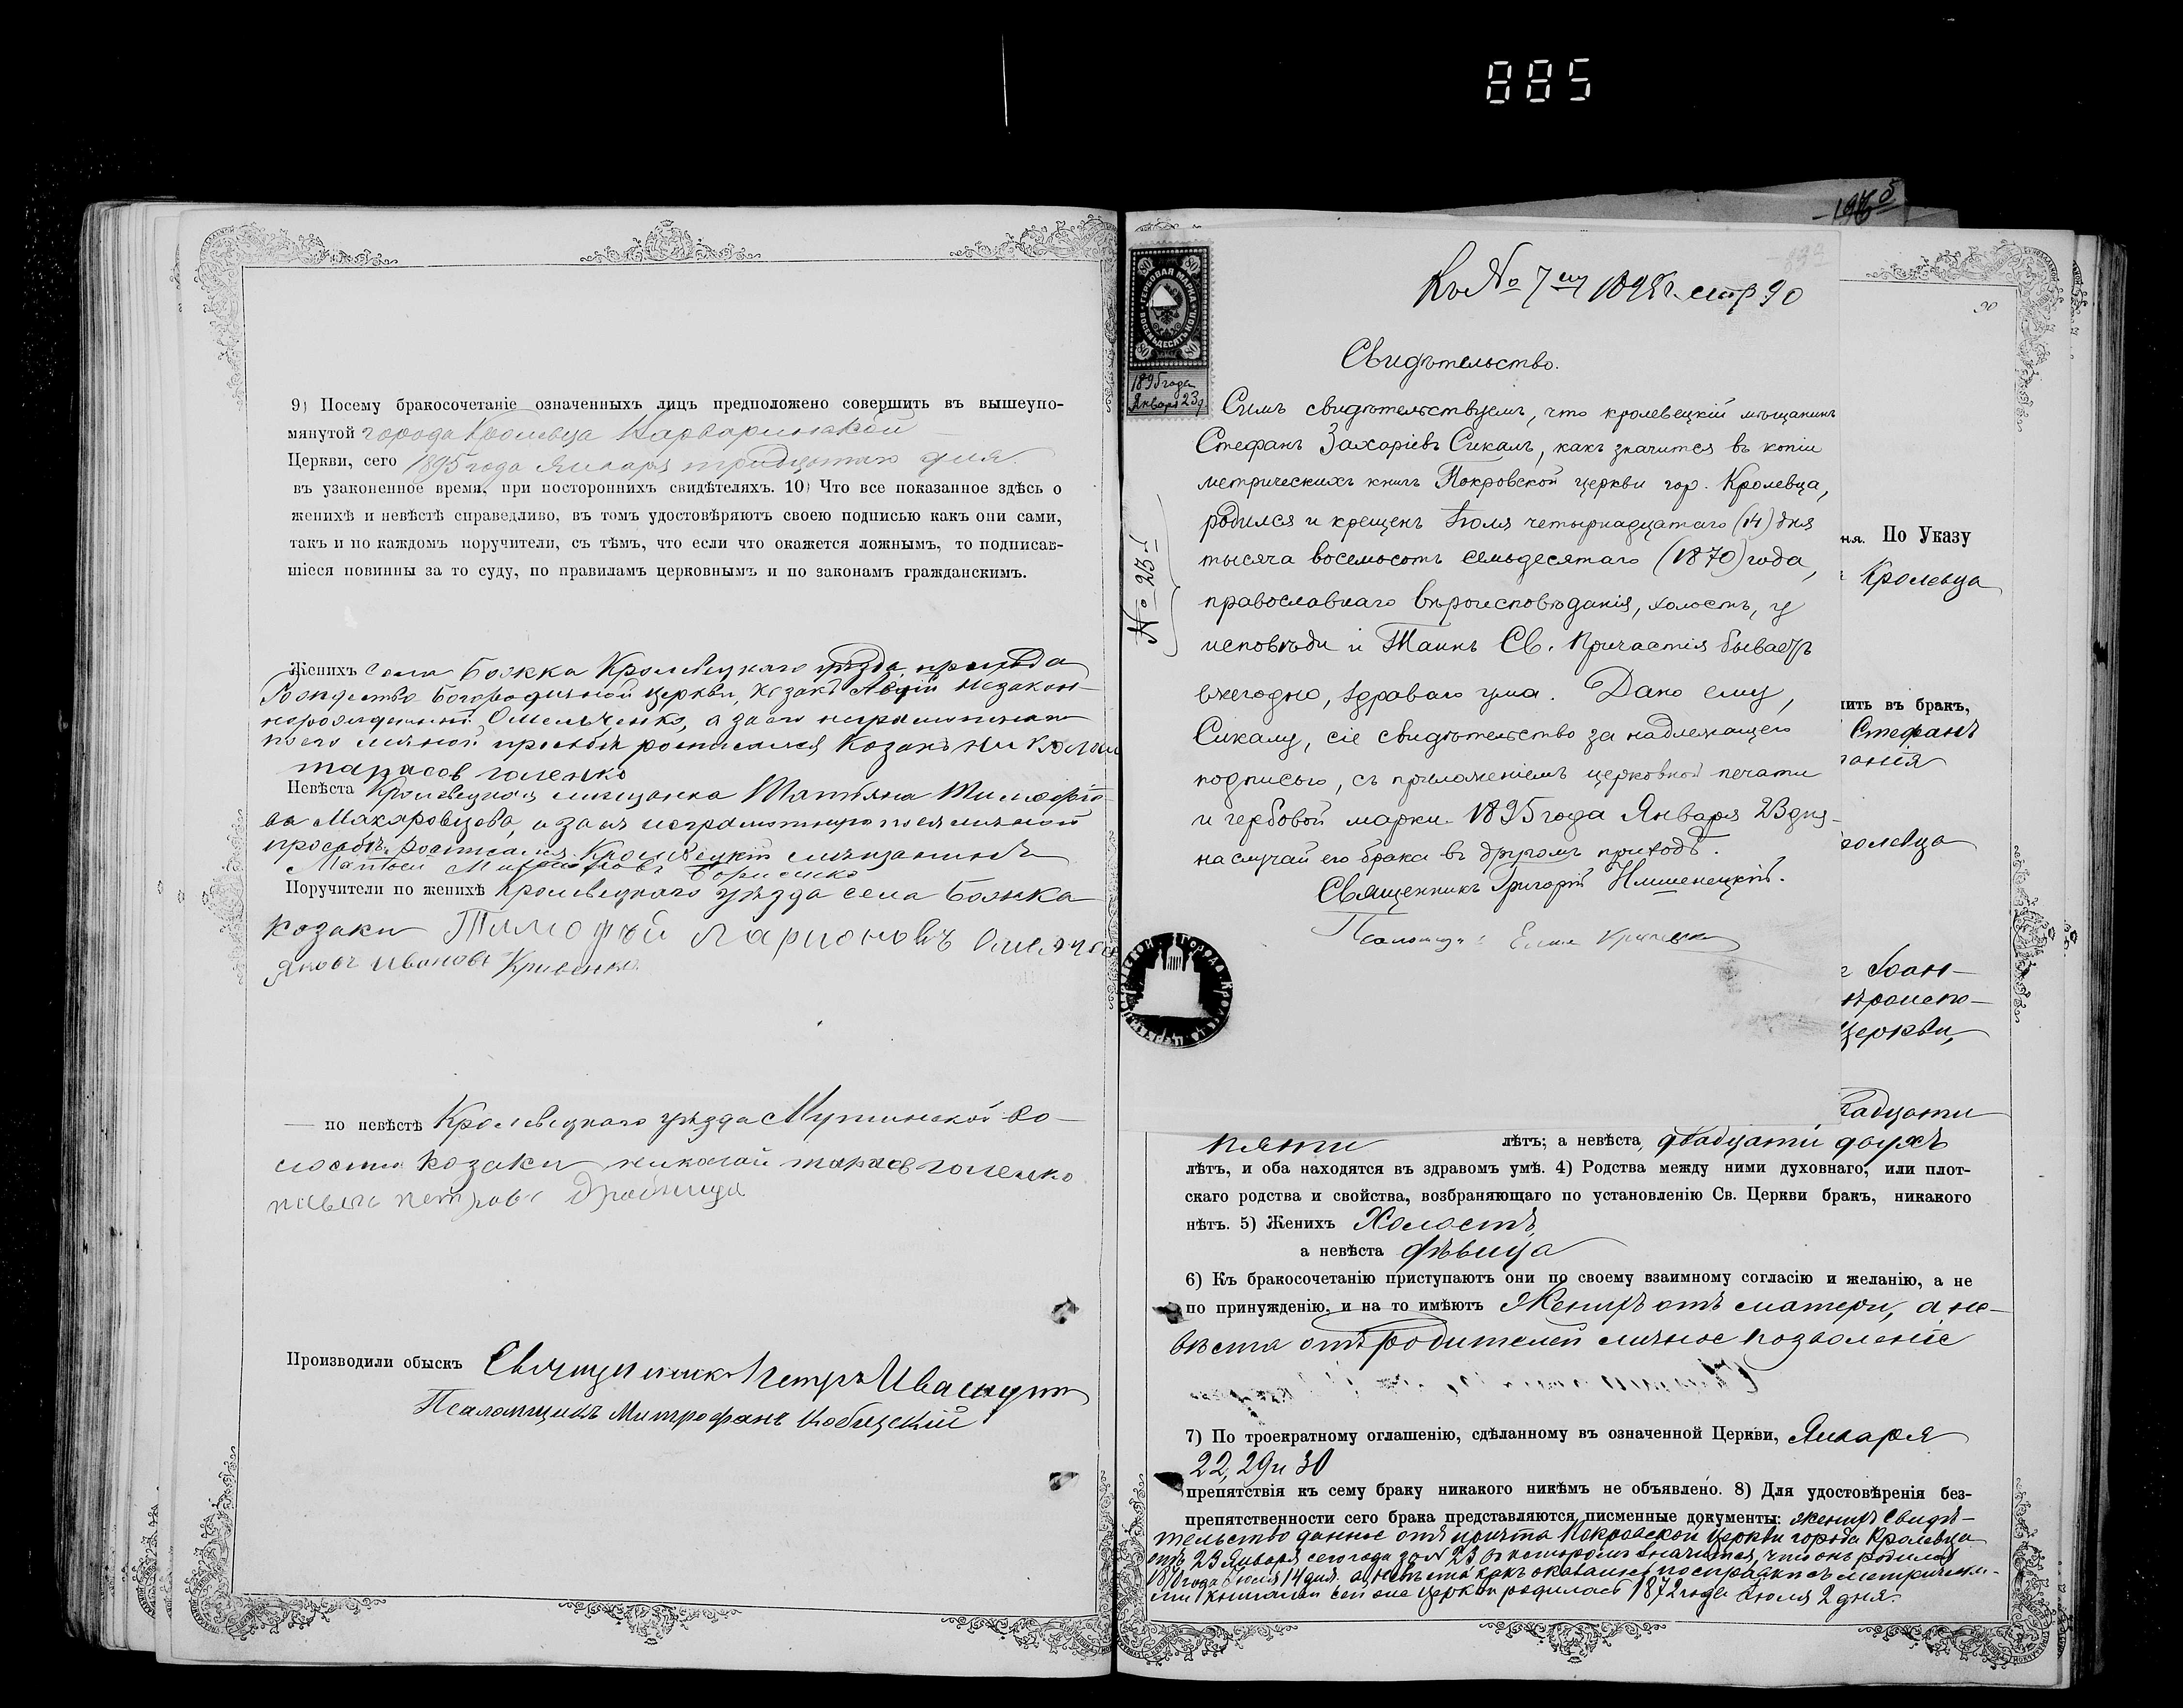 885
9) Посему бракосочетаніе означенныхъ лицъ предположено совершить въ вышеупо-
мянутой города Кролевца Варваринской
Церкви, сего 1895 года Января тридцатаго дня
въ узаконенное время, при постороннихъ свидѣтеляхъ. 10) Что все показанное здѣсь о
женихѣ и невѣстѣ справедливо, въ томъ удостовѣряютъ своею подписью какъ они сами,
такъ и по каждомъ поручители, съ тѣмъ, что если что окажется ложнымъ, то подписав-
шіеся повинны за то суду, по правиламъ церковнымъ и по законамъ гражданскимъ.
Женихъ села Божка Кролевецкаго уѣзда, прихода
Рождество Богородичной церкви, козакъ незакон-
норожденный Омельченко, а за его неграмотного
по его личной прозьбѣ росписался Козакъ Николай
тарасов голенко
Невѣста Кролевецкая мещанка Татьяна Тимофѣе-
ва Макаровцова, а за ея неграмотную по ея личной
прозьбѣ росписался Кролевецкій мѣщанинъ
Матвей Борисенко
Поручители по женихѣ Кролевецкаго уѣзда села Божка
козаки Тимофѣй Ларионовъ
яковъ Ивановъ Кривенко
— по невѣстѣ Кролевецкаго уѣзда Мутинской во-
лости козаки николай тарасов голенко
петровъ
Производили обыскъ Священникъ Петръ
Псаломщикъ Митрофанъ Кобицскій
1965
Къ № 7му 1895г. стр 90
1895 года
Января 23 д
80 80
ГЕРБОВАЯ МАРКА
ВОСЕМЬДЕСЯТЪ КОП.
80 80
Свидѣтельство.
Симъ свидѣтельствуемъ, что кролевецкій мѣщанинъ
Стефанъ Захаріевъ Сикалъ, какъ значится въ копіи
метрическихъ книгъ Покровской церкви гор. Кролевца,
родился и крещенъ Іюля четырнадцатаго (14) дня
тысяча восемьсотъ семьдесятаго (1870) года,
православнаго вѣроисповѣданія, холостъ, у
исповѣди и Таинъ Св. Причастія бываетъ
ежегодно, здраваго ума. Дано ему,
Сикалу, сіе свидѣтельство за надлежащею
подписью, съ приложеніемъ церковной печати
и гербовой марки. 1895 года Января 23 дня-
на случай его брака въ другомъ приходѣ.
Священникъ Григорій
№ 23й
90
ня. По Указу
Кролевца
ить въ бракъ,
Стефанъ
ванія
ролевца
Іоан-
вѣроиспо-
церкви,
вадцати
пяти лѣтъ; а невѣста двадцати двухъ
лѣтъ, и оба находятся въ здравомъ умѣ. 4) Родства между ними духовнаго, или плот-
скаго родства и свойства, возбраняющаго по установленію Св. Церкви бракъ, никакого
нѣтъ. 5) Женихъ Холостъ
а невѣста дѣвица
6) Къ бракосочетанію приступаютъ они по своему взаимному согласію и желанію, а не
по принужденію, и на то имѣютъ Женихъ отъ матери, а не-
вѣста отъ родителей личное позволеніе
7) По троекратному оглашенію, сдѣланному въ означенной Церкви, Января
22, 29 и 30
препятствія къ сему браку никакого никѣмъ не объявлено. 8) Для удостовѣренія без-
препятственности сего брака представляются писменные документы: женихъ Свидѣ-
тельство данное отъ причта Покровской Церкви города Кролевца
отъ 23 Января сего года за № 23 въ которомъ значится, что онъ родился
1870 года Іюля 14 дня. а невѣста какъ оказалось по справкѣ съ метрически-
ми книгами сей церкви родилась 1872 года Іюля 2 дня.